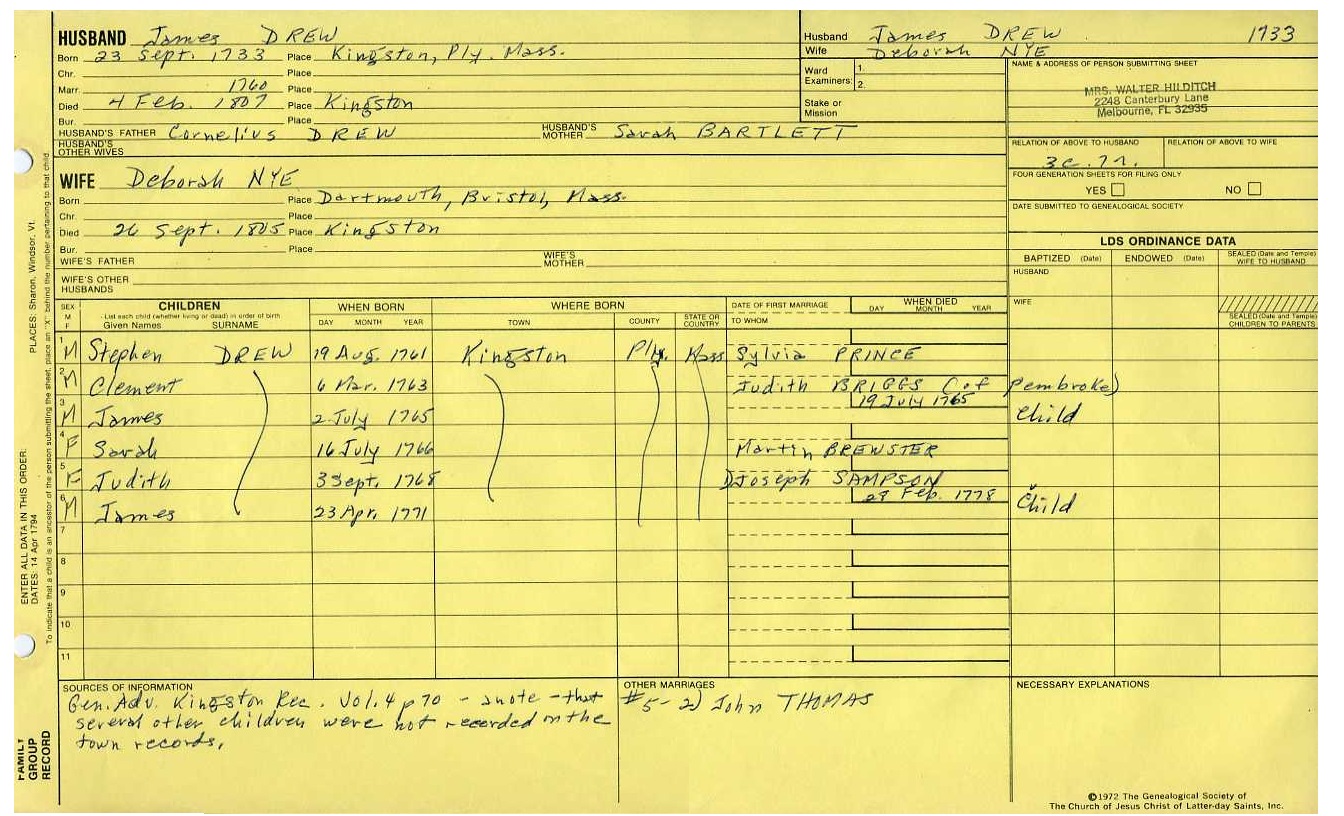 HUSBAND James DREW
Born 23 Sept. 1733 Place Kingston, Ply. Mass.
Chr. Place
Marr. 1760 Place
Died 4 Feb. 1807 Place Kingston
Bur. Place
HUSBAND'S FATHER Cornelius DREW HUSBAND'S MOTHER Sarah BARTLETT
HUSBAND'S OTHER WIVES
WIFE Deborah NYE
Born Place Dartmouth, Bristol, Mass.
Chr. Place
Died 26 Sept. 1805 Place Kingston
Bur. Place
WIFE'S FATHER WIFE'S MOTHER
WIFE'S OTHER HUSBANDS
Husband James DREW 1733
Wife Deborah NYE
Ward Examiners: 1.
2.
Stake or Mission
NAME & ADDRESS OF PERSON SUBMITTING SHEET
MRS. WALTER HILDITCH
2248 Canterbury Lane
Melbourne, FL 32935
RELATION OF ABOVE TO HUSBAND RELATION OF ABOVE TO WIFE
FOUR GENERATION SHEETS FOR FILING ONLY
YES NO
DATE SUBMITTED TO GENEALOGICAL SOCIETY
LDS ORDINANCE DATA
BAPTIZED (Date) ENDOWED (Date) SEALED (Date and Temple) WIFE TO HUSBAND
HUSBAND
WIFE
SEALED (Date and Temple) CHILDREN TO PARENTS
SEX M F CHILDREN WHEN BORN WHERE BORN DATE OF FIRST MARRIAGE WHEN DIED
List each child (whether living or dead) in order of birth
Given Names SURNAME DAY MONTH YEAR TOWN COUNTY STATE OR COUNTRY TO WHOM DAY MONTH YEAR
1 M Stephen DREW 19 Aug. 1761 Kingston Ply. Mass Sylvia PRINCE
2 M Clement 6 Mar. 1763 Judith BRIGGS (of Pembroke)
3 M James 2 July 1765 19 July 1765 Child
4 F Sarah 16 July 1766 Martin BREWSTER
5 F Judith 3 Sept. 1768 Joseph SAMPSON
6 M James 23 Apr. 1771 Feb. 1778 Child
7
8
9
10
11
SOURCES OF INFORMATION
Gen. Adv. Kingston Rec. Vol. 4 p 70 - a note - that
several other children were not recorded in the
town records.
OTHER MARRIAGES
#5 - 2) John THOMAS
NECESSARY EXPLANATIONS
©1972 The Genealogical Society of
The Church of Jesus Christ of Latter-day Saints, Inc.
PLACES: Sharon, Windsor, Vt.
ENTER ALL DATA IN THIS ORDER:
DATES: 14 Apr 1794
To indicate that a child is an ancestor of the person submitting the sheet, place an "X" behind the number pertaining to that child
FAMILY GROUP RECORD